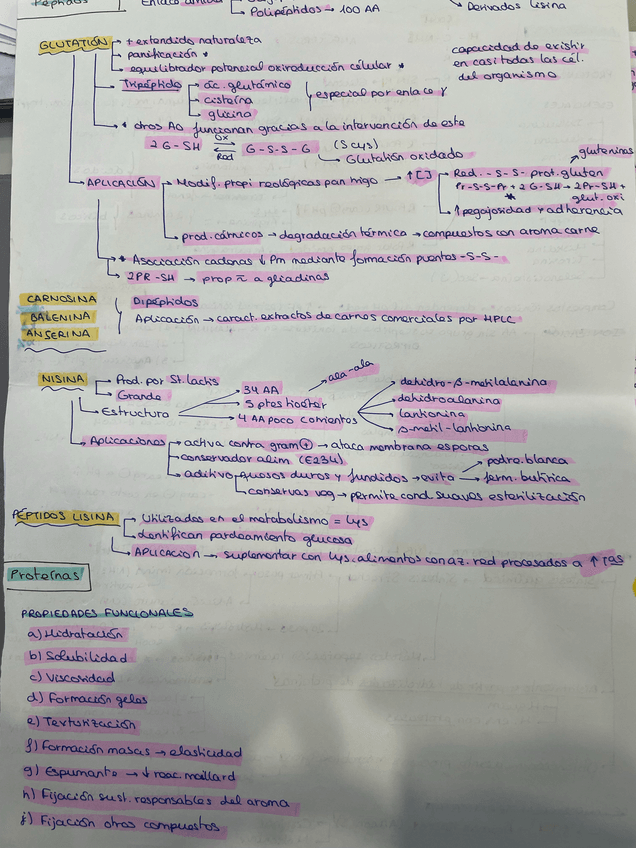 Péptidos
Enlace amida
Polipéptidos → 100 AA
Derivados lisina
GLUTATIÓN
+ extendido naturaleza
panificación *
equilibrador potencial oxirreducción celular *
capacidad de existir
en casi todas las cél.
del organismo
Tripéptido
ác. glutámico
cisteína
glicina
especial por enlace γ
* otros AO funcionan gracias a la intervención de este
2 G-SH ⇌ G-S-S-G (S cys)
Ox
Red
Glutatión oxidado
APLICACIÓN
Modif. propi reológicas pan trigo → ↑[ ]
Red. -S-S- prot. gluten
gluteninas
Pr-S-S-Pr + 2 G-SH → 2Pr-SH +
glut. oxi
↑ pegajosidad y adherencia
prod. cárnicos → degradación térmica → compuestos con aroma carne
* Asociación cadenas ↓ Pm mediante formación puentes -S-S-
2PR-SH → prop π a gliadinas
CARNOSINA
BALENINA
ANSERINA
Dipéptidos
Aplicación → caract. extractos de carnes comerciales por HPLC
NISINA
Prod. por St. lactis
Grande
Estructura
34 AA
5 ptes tioéter
ala-ala
4 AA poco corrientes
dehidro-β-metilalanina
dehidroalanina
lantionina
β-metil-lantionina
Aplicaciones
activa contra gram ⊕ → ataca membrana esporas
conservador alim. (E234)
aditivo
quesos duros y fundidos → evita
podre. blanca
ferm. butírica
conservas veg → permite cond. suaves esterilización
PÉPTIDOS LISINA
Utilizados en el metabolismo = Lys
Identifican pardeamiento glucosa
APLICACION → suplementar con Lys. alimentos con az. red procesados a ↑ Tas
Proteínas
PROPIEDADES FUNCIONALES
a) Hidratación
b) Solubilidad
c) Viscosidad
d) Formación geles
e) Texturización
f) Formación masas → elasticidad
g) Espumante → ↓ reac. maillard
h) Fijación sust. responsables del aroma
j) Fijación otros compuestos